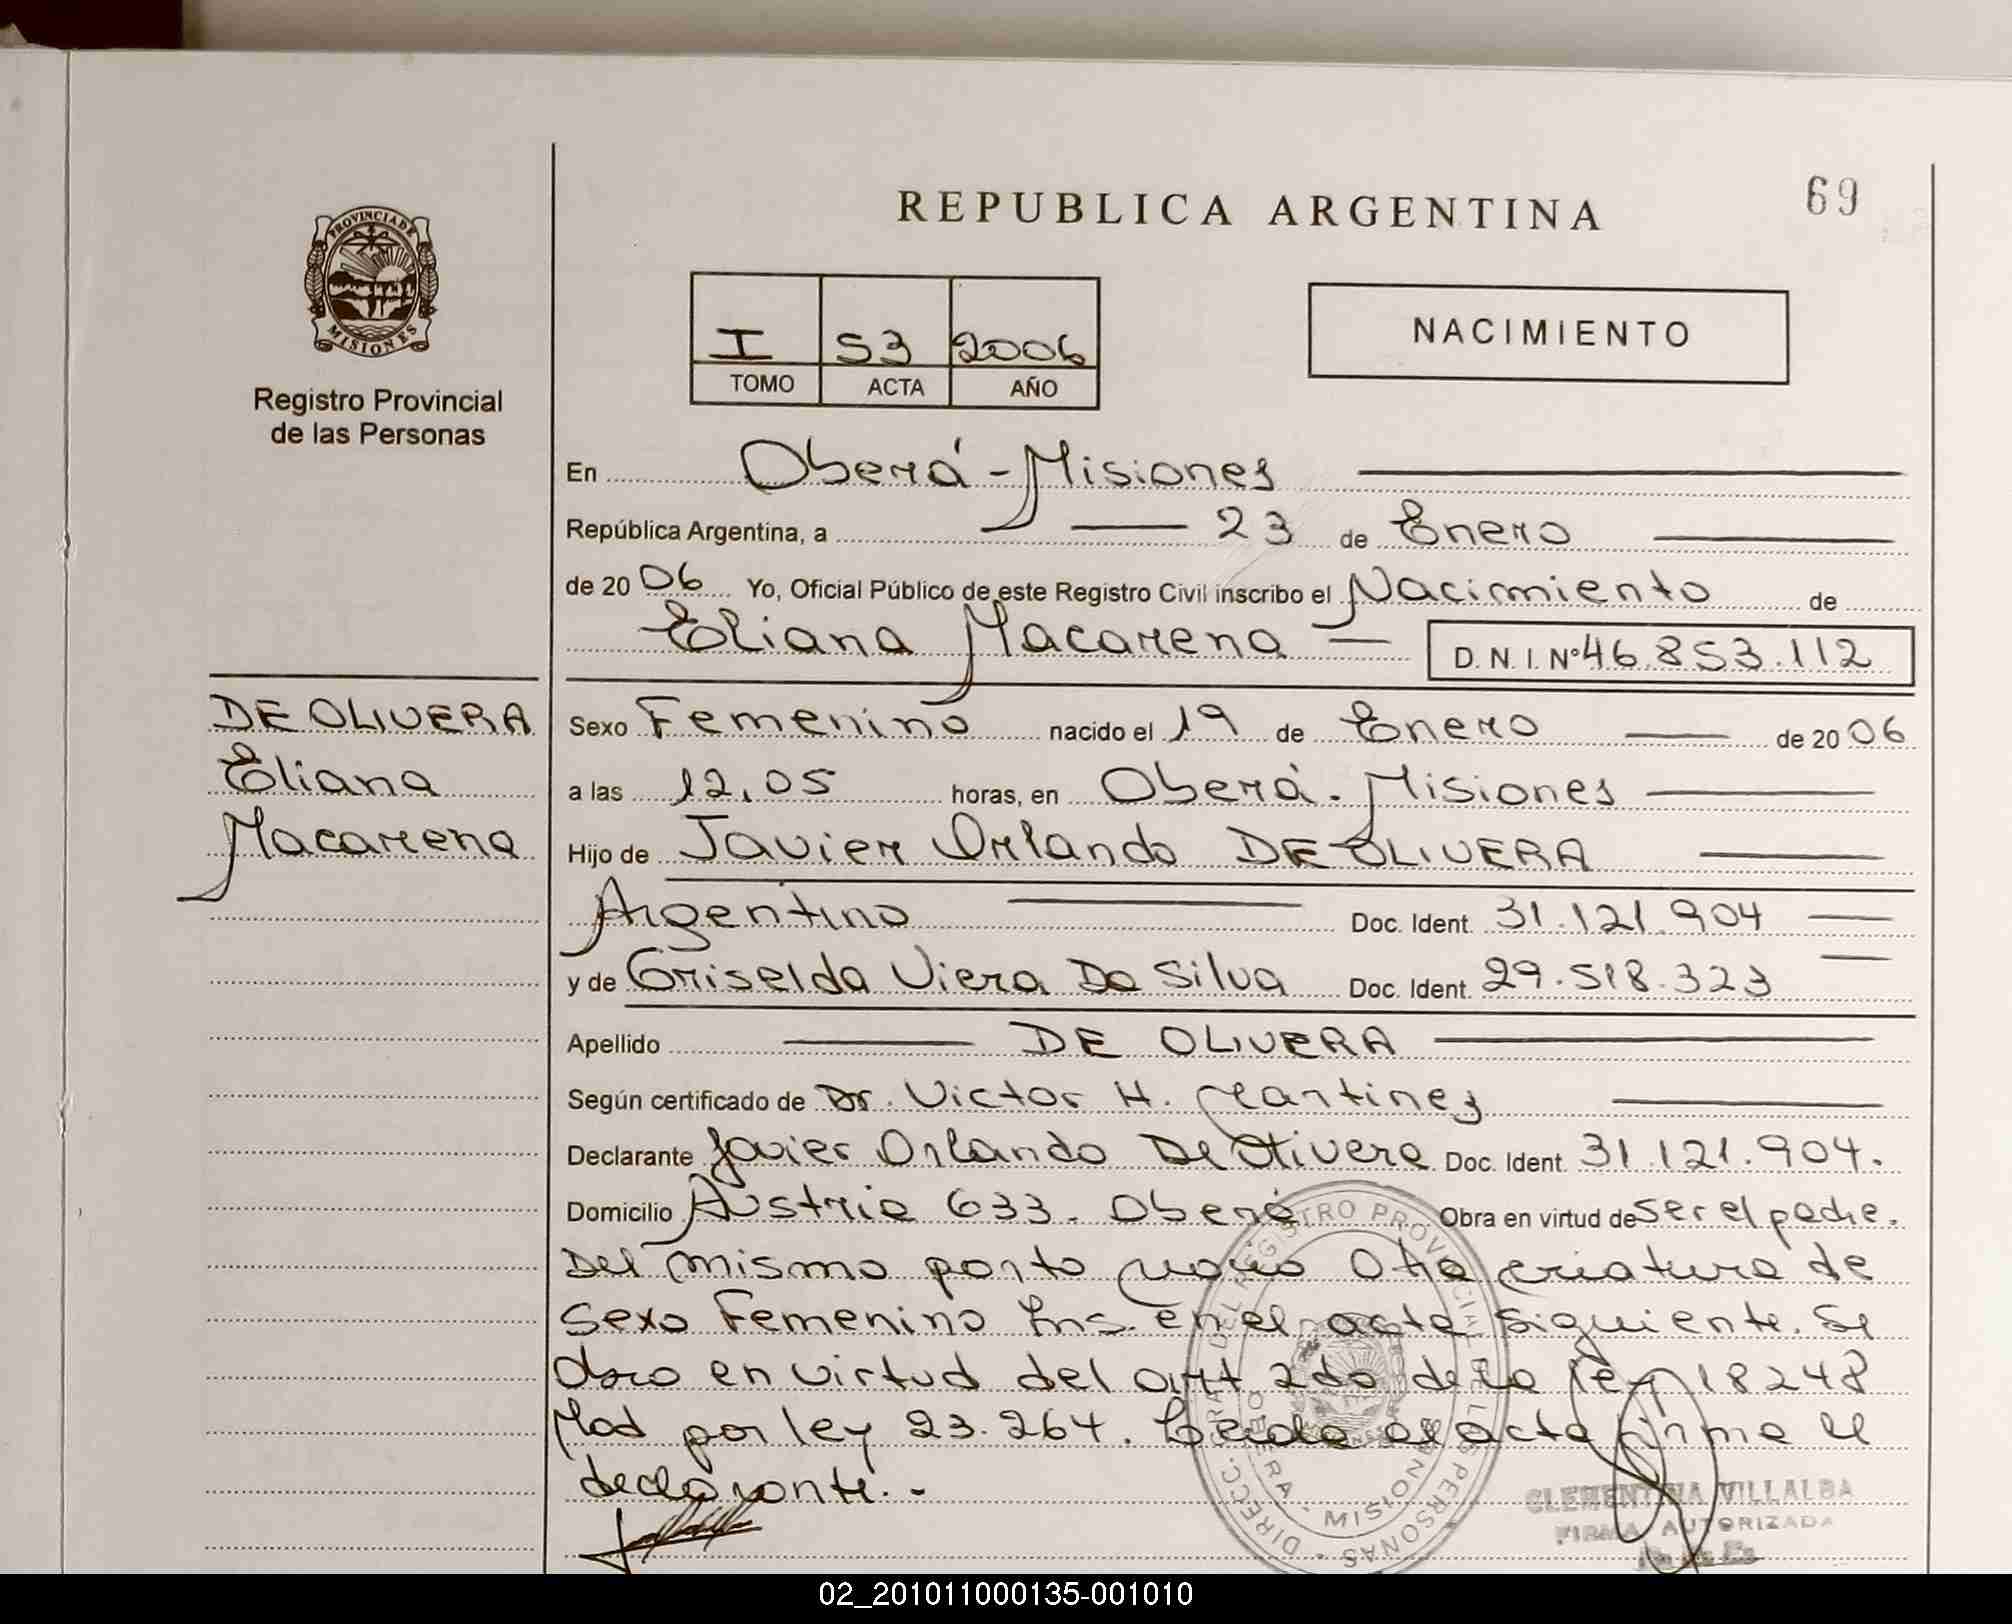 REPUBLICA ARGENTINA
69
PROVINCIA DE
MISIONES
Registro Provincial
de las Personas
I 53 2006
TOMO ACTA AÑO
NACIMIENTO
En Oberá - Misiones
República Argentina, a 23 de Enero
de 2006 Yo, Oficial Público de este Registro Civil inscribo el Nacimiento de
Eliana Macarena D. N. I. Nº 46.853.112
DE OLIVERA
Eliana
Macarena
Sexo Femenino nacido el 19 de Enero de 2006
a las 12,05 horas, en Oberá. Misiones
Hijo de Javier Orlando DE OLIVERA
Argentino Doc. Ident. 31.121.904
y de Griselda Viera Da Silva Doc. Ident. 29.518.323
Apellido DE OLIVERA
Según certificado de Dr. Victor H. Martinez
Declarante Javier Orlando De Olivera Doc. Ident. 31.121.904.
Domicilio Austria 633. Oberá Obra en virtud de ser el padre.
Del mismo parto nació Otra criatura de
sexo Femenino Ins. en el acta siguiente. Se
Obro en virtud del artt 2do de la ley 18248
Mod por ley 23.264. Leida el acta firma el
declarante. -
DIRECC. GRAL. DEL REGISTRO PROVINCIAL DE LAS PERSONAS
OBERA - MISIONES
CLEMENTINA VILLALBA
FIRMA AUTORIZADA
02_201011000135-001010